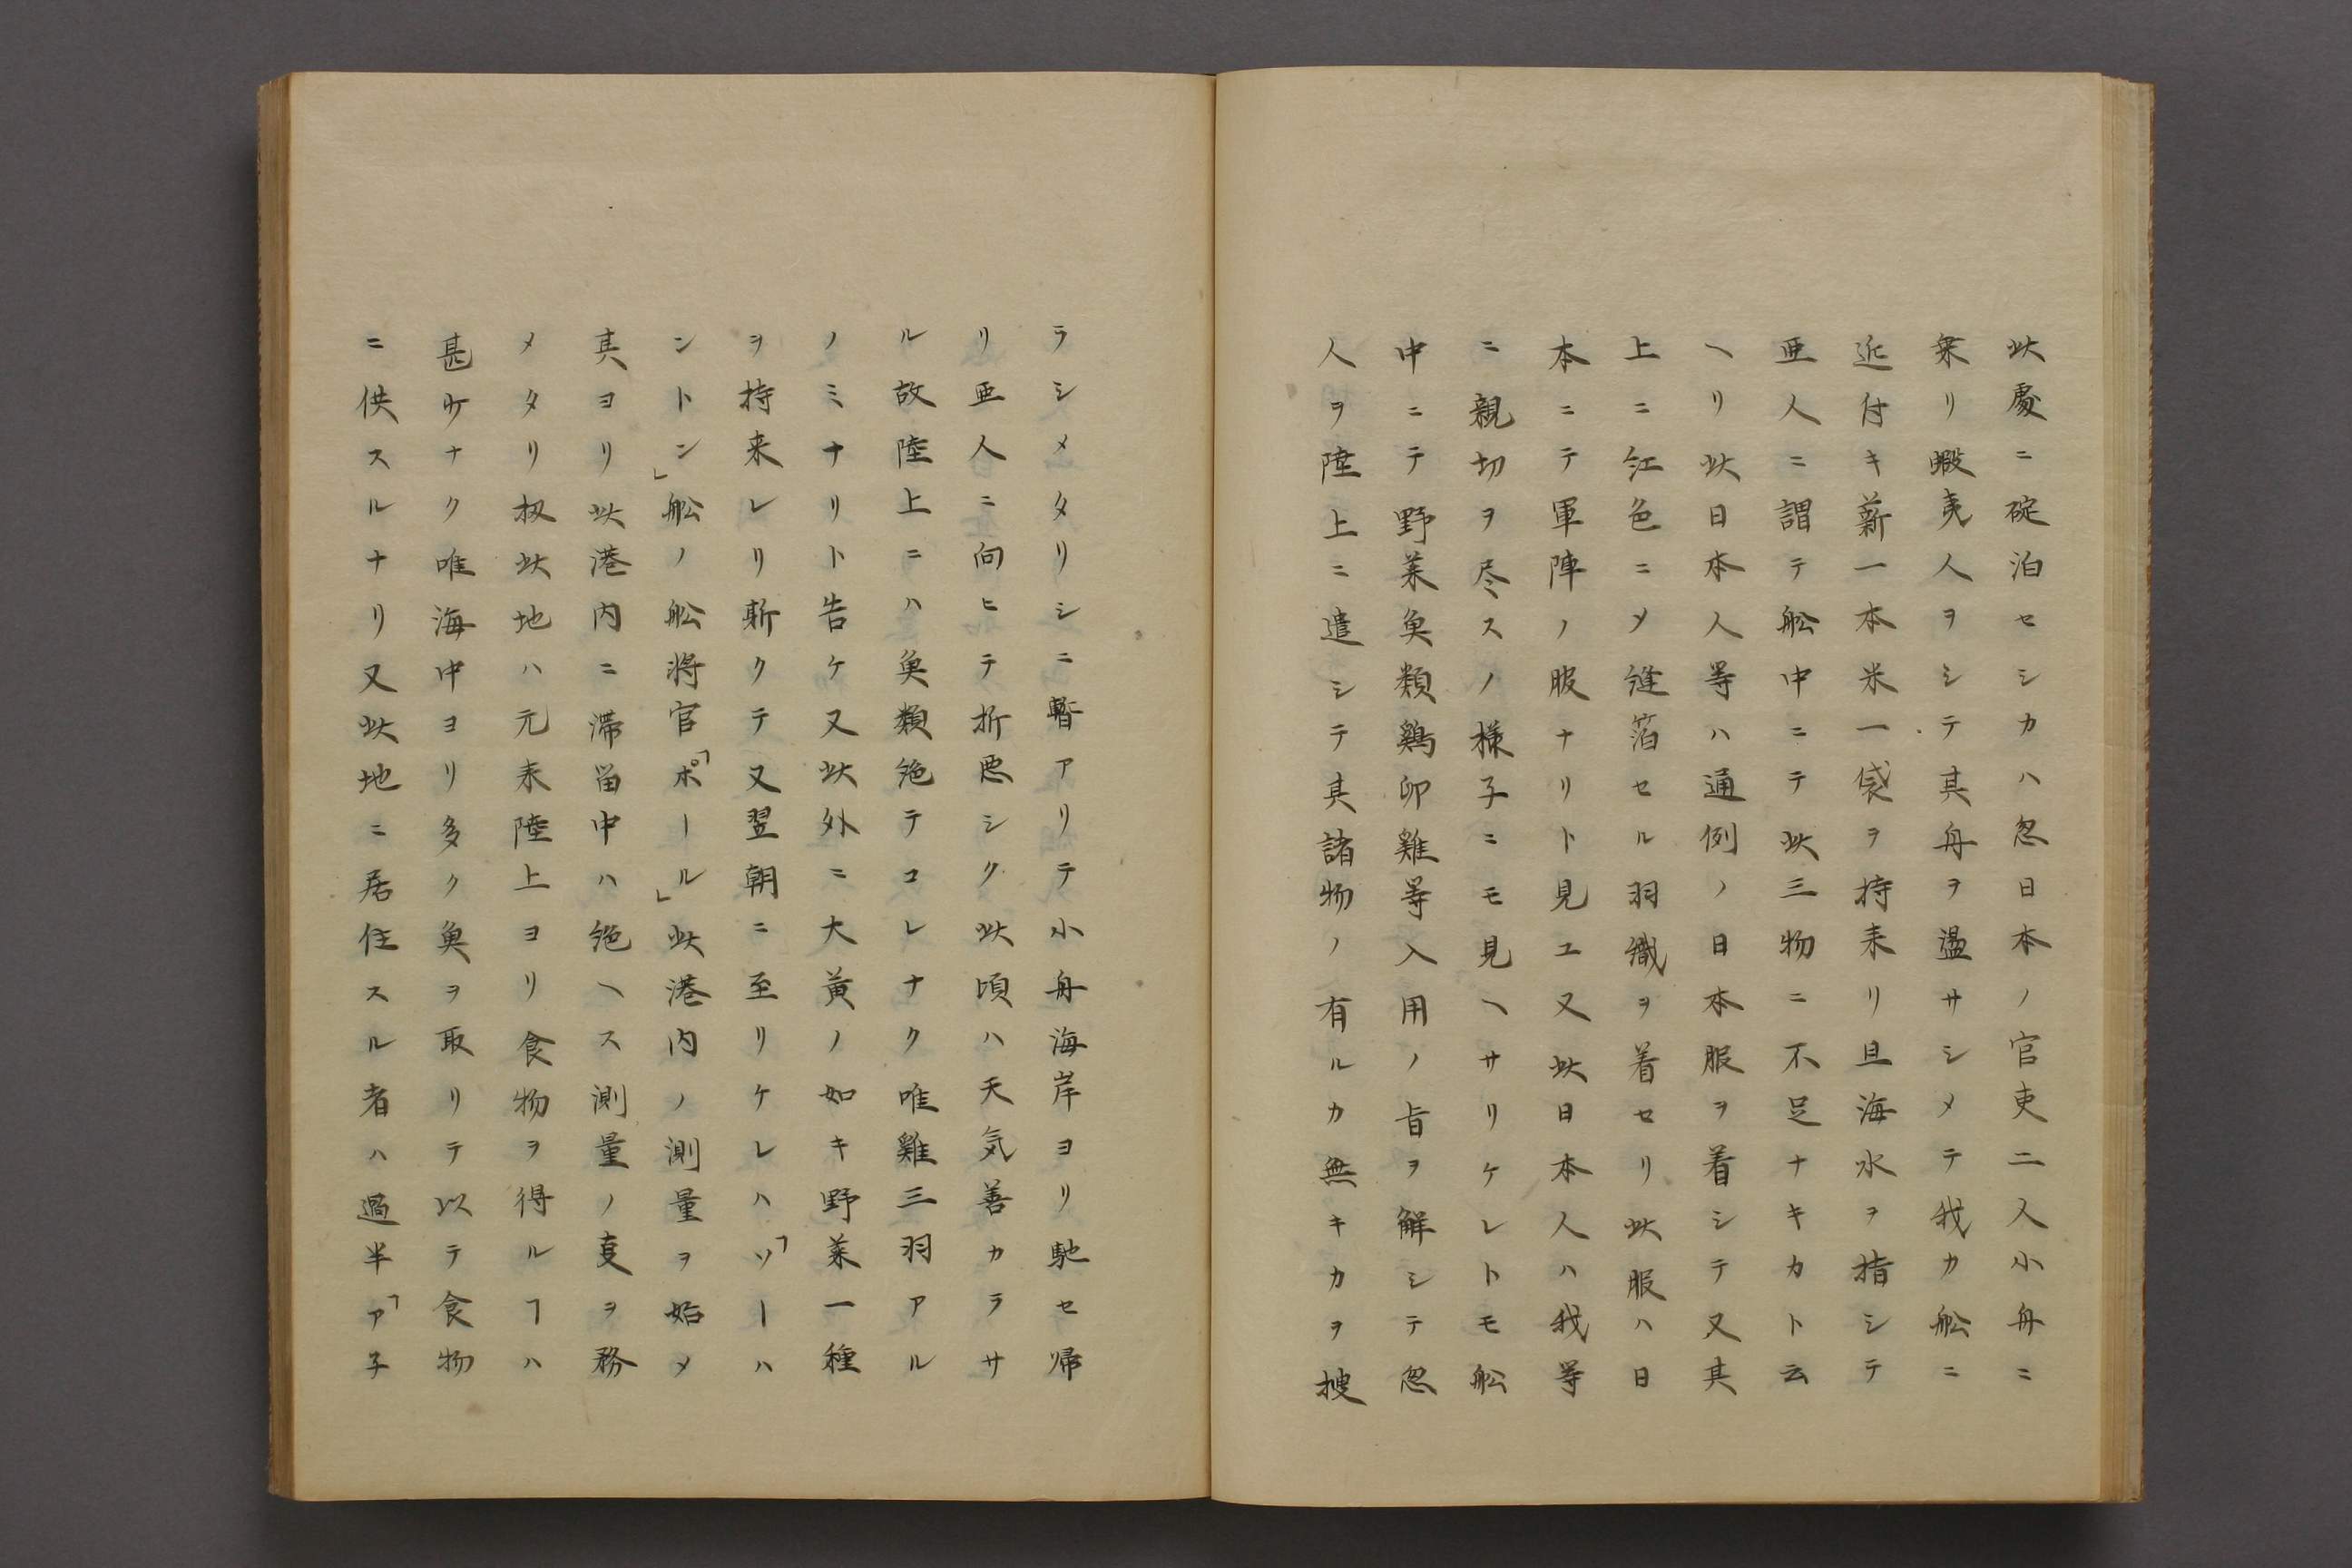 此處ニ碇泊セシカハ忽日本ノ官吏二人小舟ニ
乗リ蝦夷人ヲシテ其舟ヲ盪サシメテ我カ舩ニ
近付キ薪一本米一袋ヲ持来リ且海水ヲ指シテ
亜人ニ謂テ舩中ニテ此三物ニ不足ナキカト云
ヘリ此日本人等ハ通例ノ日本服ヲ着シテ又其
上ニ紅色ニメ縫箔セル羽織ヲ着セリ此服ハ日
本ニテ軍陣ノ服ナリト見エ又此日本人ハ我等
ニ親切ヲ尽スノ様子ニモ見ヘサリケレトモ舩
中ニテ野菜魚類鷄卵雞等入用ノ旨ヲ解シテ忽
人ヲ陸上ニ遣シテ其諸物ノ有ルカ無キカヲ捜
ラシメタリシニ暫アリテ小舟海岸ヨリ馳セ帰
リ亜人ニ向ヒテ折悪シク此頃ハ天気善カラサ
ル故陸上ニハ魚類絶テコレナク唯雞三羽アル
ノミナリト告ケ又此外ニ大黄ノ如キ野菜一種
ヲ持来レリ斯クテ又翌朝ニ至リケレハ「ソーハ
ントン」舩ノ舩将官「ポール」此港内ノ測量ヲ始メ
其ヨリ此港内ニ滞留中ハ絶ヘス測量ノ事ヲ務
メタリ扨此地ハ元来陸上ヨリ食物ヲ得ルヿハ
甚少ナク唯海中ヨリ多ク魚ヲ取リテ以テ食物
ニ供スルナリ又此地ニ居住スル者ハ過半「ア子